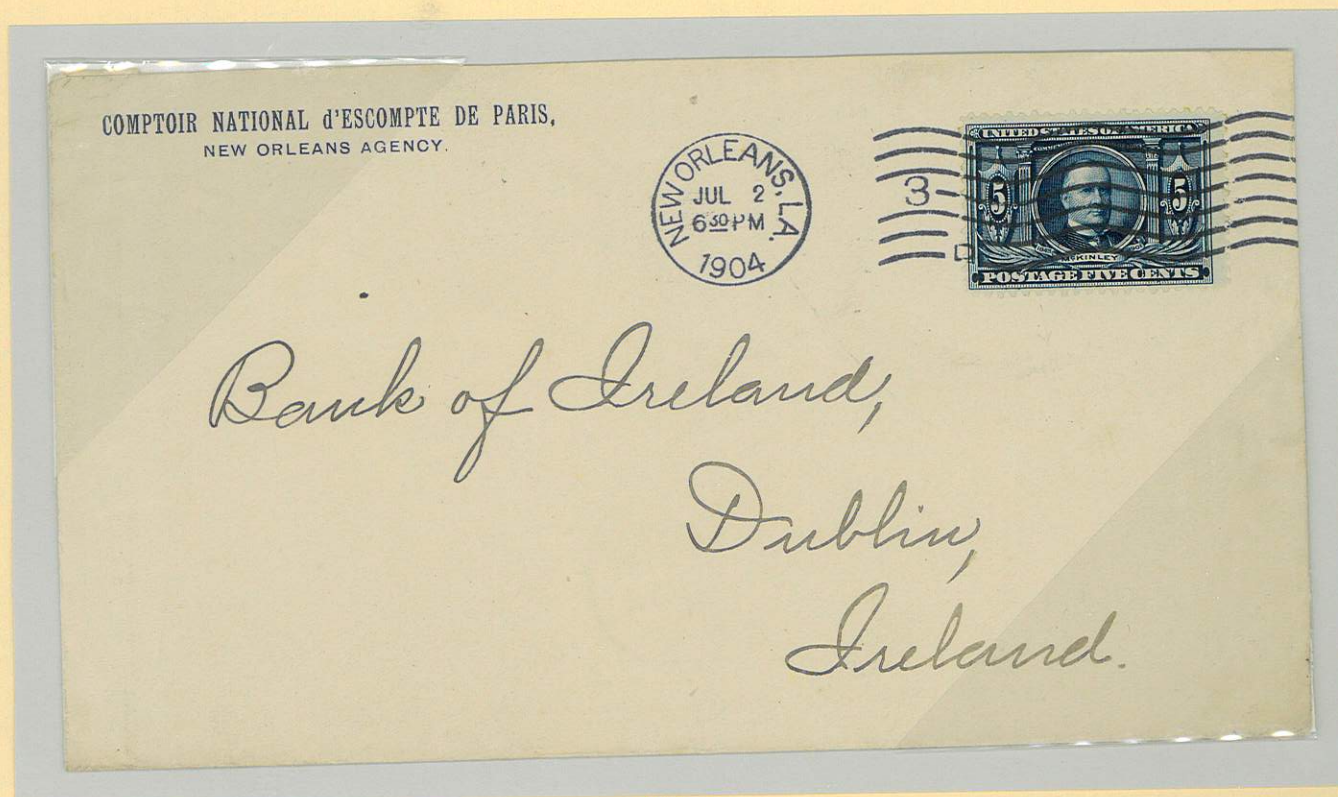 COMPTOIR NATIONAL d'ESCOMPTE DE PARIS,
NEW ORLEANS AGENCY.
NEW ORLEANS, LA.
JUL 2
6 30 PM
1904
3
UNITED STATES OF AMERICA
5 5
McKINLEY
POSTAGE FIVE CENTS
Bank of Ireland,
Dublin,
Ireland.